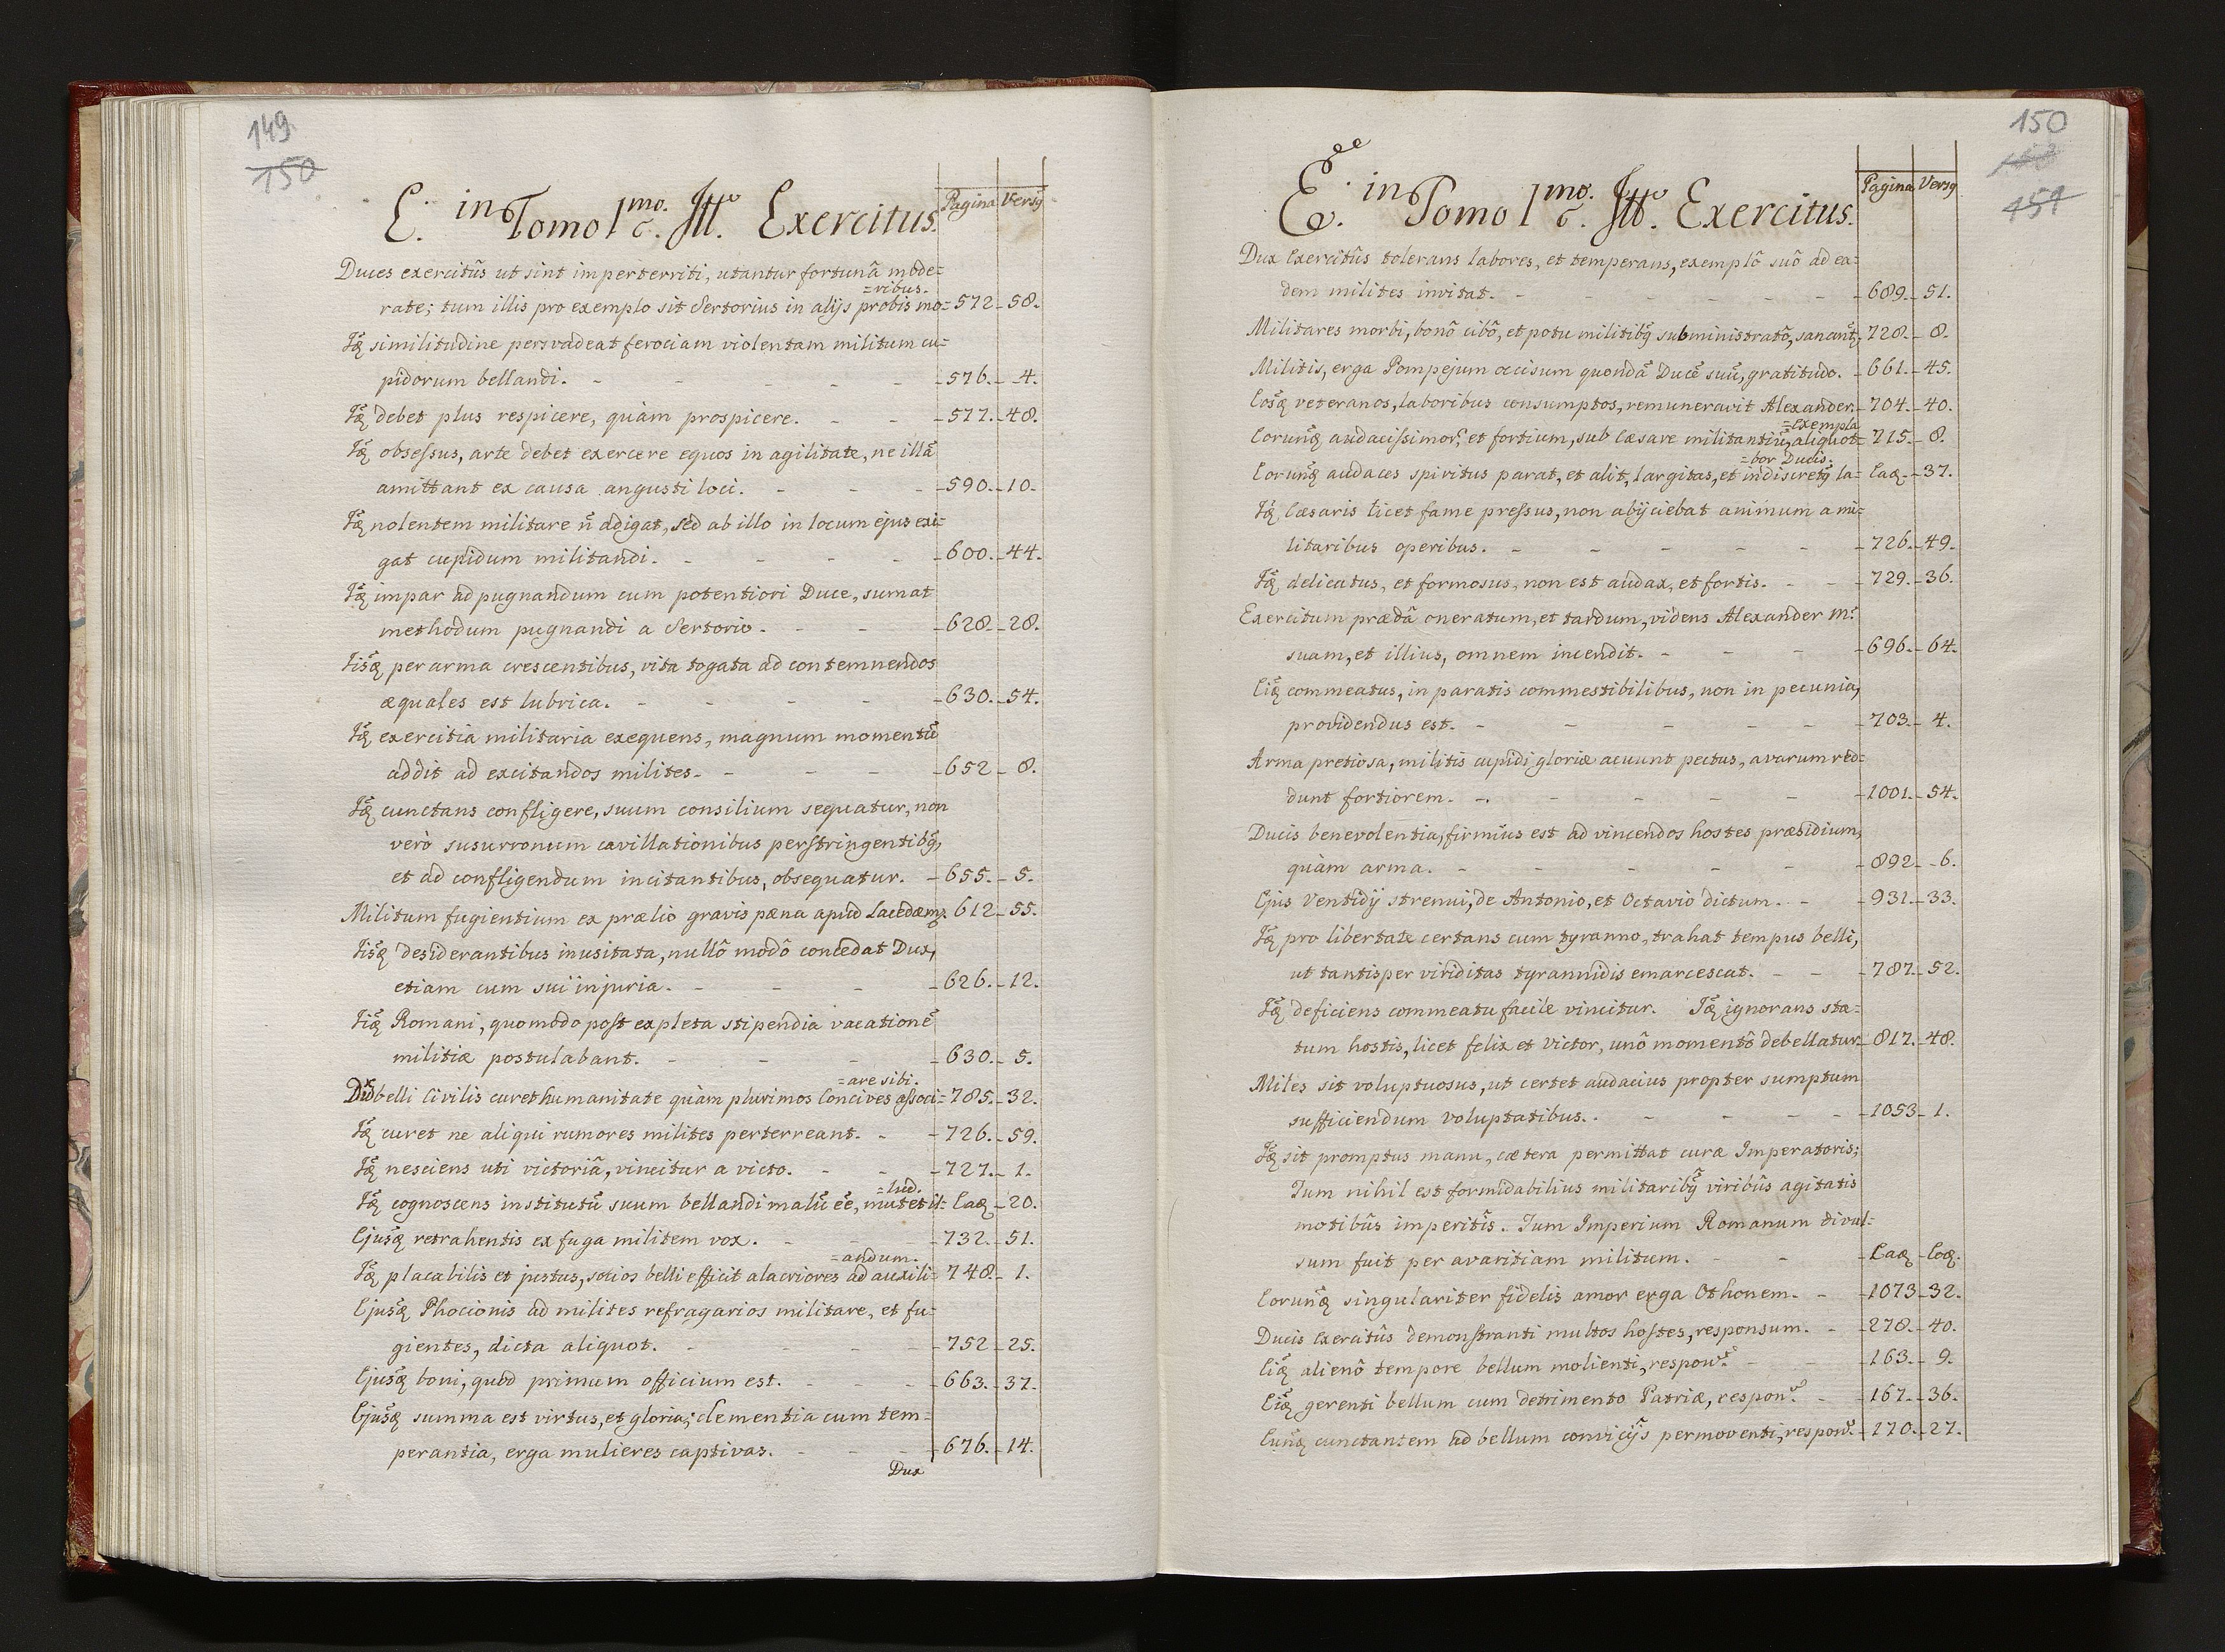 149
150
E. in Tomo 1mo. c. Ittō Exercitus. Pagina Versq
Duces exercitûs ut sint imperterriti, utantur fortunâ mode=
=ribus.
rate; tum illis pro exemplo sit Sertorius in alijs probis mo= 572 - 58.
Iđq similitudine persvadeat ferociam violentam militum cu=
pidorum bellandi. - - - - - - 576. - 4.
Iđq debet plus respicere, quàm prospicere. - - - 577. - 48.
Iđq obsessus, arte debet exercere equos in agilitate, ne illā
amittant ex causa angusti loci. - - - 590. - 10.
Iđq nolentem militare n̄ adigat, sed ab illo in locum ejus exi=
gat cupidum militandi. - - - - 600. - 44.
Iđq impar ad pugnandum cum potentiori Duce, sumat
methodum pugnandi a Sertorio. - - - 628. - 28.
Iisq̄ per arma crescentibus, vita togata ad contemnendos
æquales est lubrica. - - - - - 630. - 54.
Iđq exercitia militaria exequens, magnum momentū
addit ad excitandos milites. - - - - 652 - 8.
Iđq cunctans confligere, suum consilium sequatur, non
verò susurronum cavillationibus perstringentibq,
et ad confligendum incitantibus, obsequatur. - 655. - 5.
Militum fugientium ex prælio gravis pæna apud Lacedæm. 612 - 55.
Iisq̄ desiderantibus inusitata, nullô modô concedat Dux,
etiam cum sui injuria. - - - - 626. - 12.
Iiq̄ Romani, quomodo post expleta stipendia vacationē
militiæ postulabant. - - - - 630. - 5.
=are sibi.
Dux belli Civilis curet humanitate quàm plurimos Concives associ= 785. - 32.
Iđq curet ne aliqui rumores milites perterreant. - - 726. - 59.
Iđq nesciens uti victoriâ, vincitur a victo. - - - 727. - 1.
=lud.
Iđq cognoscens institutū suum bellandi malū eē, mutet il= Eaq - 20.
Ejusq̄ retrahentis ex fuga militem vox. - - - 732. - 51.
=andum.
Iđq placabilis et justus, socios belli efficit alacriores ad auxili= 748. - 1.
Ejusq̄ Phocionis ad milites refragarios militare, et fu=
gientes, dicta aliquot. - - - - 752 - 25.
Ejusq̄ boni, quod primum officium est. - - - 663. - 37.
Ejusq̄ summa est virtus, et gloria; clementia cum tem=
perantia, erga mulieres captivas. - - - 676. - 14.
Dux
150
151
E. in Tomo 1mo. c. Ittō. Exercitus. Pagina Versq
Dux Exercitûs tolerans labores, et temperans, exemplô suô ad ea=
dem milites invitat. - - - - - - 689. - 51.
Militares morbi, bonô cibô, et potu militibq̄ subministratô, sanant̄. 728. - 8.
Militis, erga Pompejum occisum quondā Ducē suū, gratitudo. - 661. - 45.
Eosq̄ veteranos, laboribus consumptos, remuneravit Alexander. - 704. - 40.
=exempla
Eorunq̄ audacissimor, et fortium, sub Cæsare militantiū, aliquot= 715. - 8.
=bor Ducis.
Eorunq̄ audaces spiritus parat, et alit, largitas, et indiscretq la= Eaq. - 37.
Iđq Cæsaris licet fame pressus, non abijciebat animum a mi=
litaribus operibus. - - - - - 726. - 49.
Iđq delicatus, et formosus, non est audax, et fortis. - - 729. - 36.
Exercitum prædâ oneratum, et tardum, videns Alexander M.
suam, et illius, omnem incendit. - - - 696. - 64.
Eiq̄ commeatus, in paratis commestibilibus, non in pecunia,
providendus est. - - - - - 703. - 4.
Arma pretiosa, militis cupidi gloriæ acuunt pectus, avarum red=
dunt fortiorem. - - - - - 1001. - 54.
Ducis benevolentia, firmius est ad vincendos hostes præsidium,
quàm arma. - - - - - - 892. - 6.
Ejus Ventidij strenui, de Antonio, et Octavio dictum. - - 931. - 33.
Iđq pro libertate certans cum tyranno, trahat tempus belli,
ut tantisper viriditas tyrannidis emarcescat. - - - 787. - 52.
Iđq deficiens commeatu facile vincitur. Iđq ignorans sta=
tum hostis, licet felix et victor, unô momentô debellatur. - 817. - 48.
Miles sit voluptuosus, ut certet audacius propter sumptum
sufficiendum voluptatibus. - - - - 1053 - 1.
Iđq sit promptus manu, cætera permittat curæ Imperatoris;
Tum nihil est formidabilius militaribq̄ viribus agitatis
motibûs imperitis. Tum Imperium Romanum divul=
sum fuit per avaritiam militum. - - - Eaq - Eoq.
Eorunq̄ singulariter fidelis amor erga Othonem. - - 1073 - 32.
Ducis Exercitûs demonstranti multos hostes, responsum. - 278. - 40.
Eiq̄ alienô tempore bellum molienti, respon. - - 163. - 9.
Eiq̄ gerenti bellum cum detrimento Patriæ, respon. - 167. - 36.
Eunq̄ cunctantem ad bellum convicijs permoventi, respon. - 170. - 27.